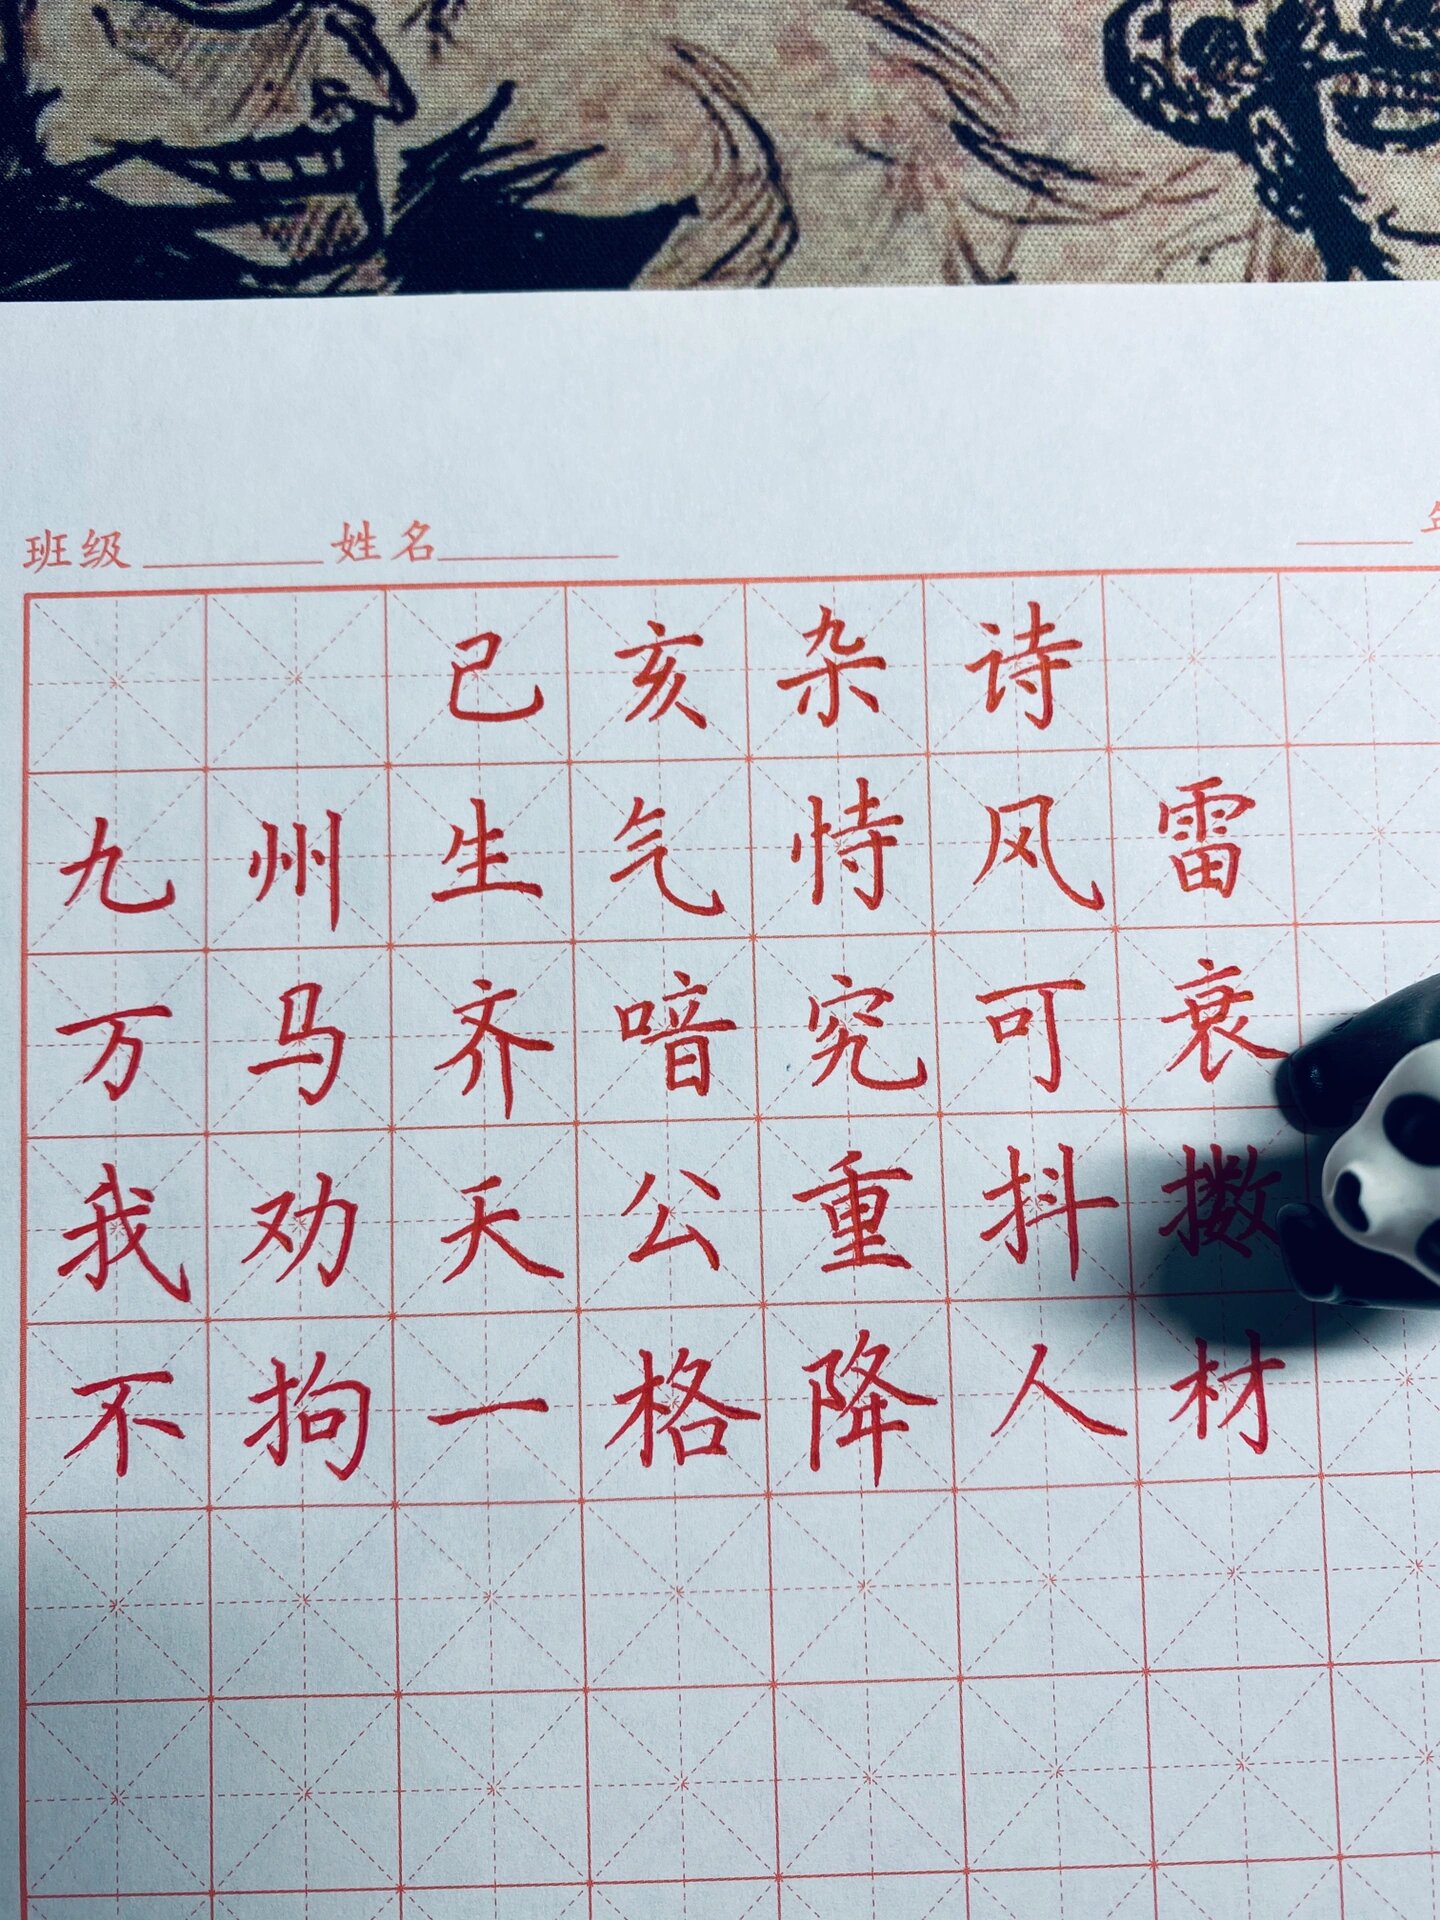 班级 姓名
己亥杂诗
九州生气恃风雷
万马齐喑究可衰
我劝天公重抖擞
不拘一格降人材